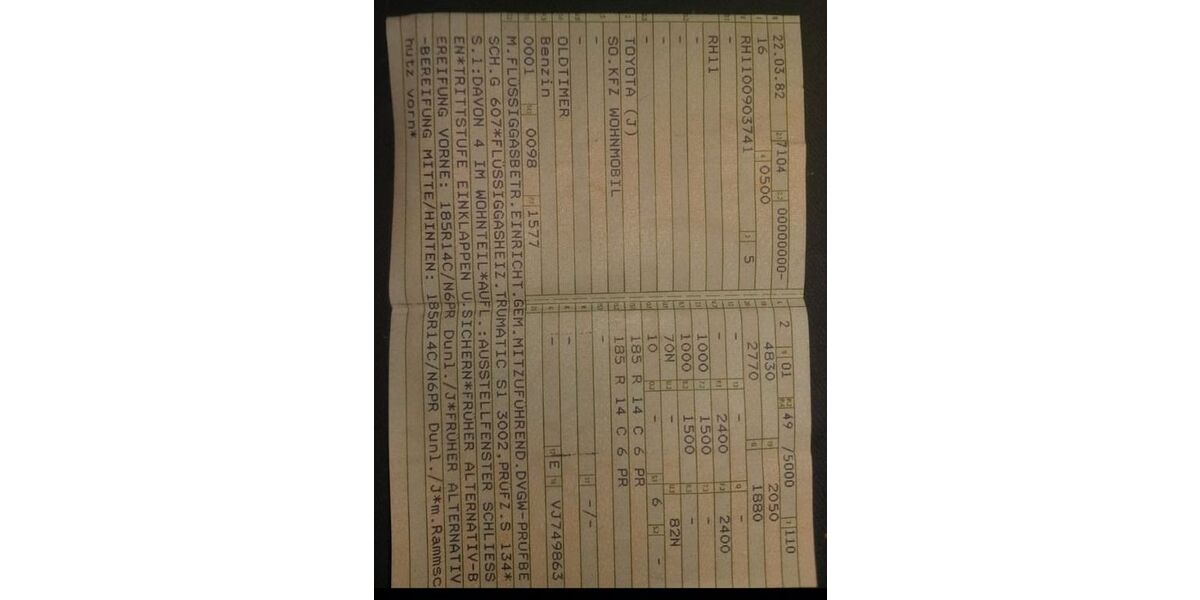 22.03.82 7104 00000000-
16 0500
RH1100903741 5
-
RH11
-
-
-
-
TOYOTA (J)
SO.KFZ WOHNMOBIL
-
-
OLDTIMER
Benzin
0001 0098 1577
2 01 49 /5000 110
4830 2050
2770 1880
- - -
- 2400 2400
1000 1500 -
1000 1500 -
70N - 82N
10 - 6 -
185 R 14 C 6 PR
185 R 14 C 6 PR
-
- -/-
-
- E VJ749863
M.FLÜSSIGGASBETR.EINRICHT.GEM.MITZUFÜHREND.DVGW-PRÜFBE
SCH.G 607*FLÜSSIGGASHEIZ.TRUMATIC S1 3002,PRÜFZ.S 134*
S.1:DAVON 4 IM WOHNTEIL*AUFL.:AUSSTELLFENSTER SCHLIESS
EN*TRITTSTUFE EINKLAPPEN U.SICHERN*FRÜHER ALTERNATIV-B
EREIFUNG VORNE: 185R14C/N6PR Dunl./J*FRÜHER ALTERNATIV
-BEREIFUNG MITTE/HINTEN: 185R14C/N6PR Dunl./J*m.Rammsc
hutz vorn*